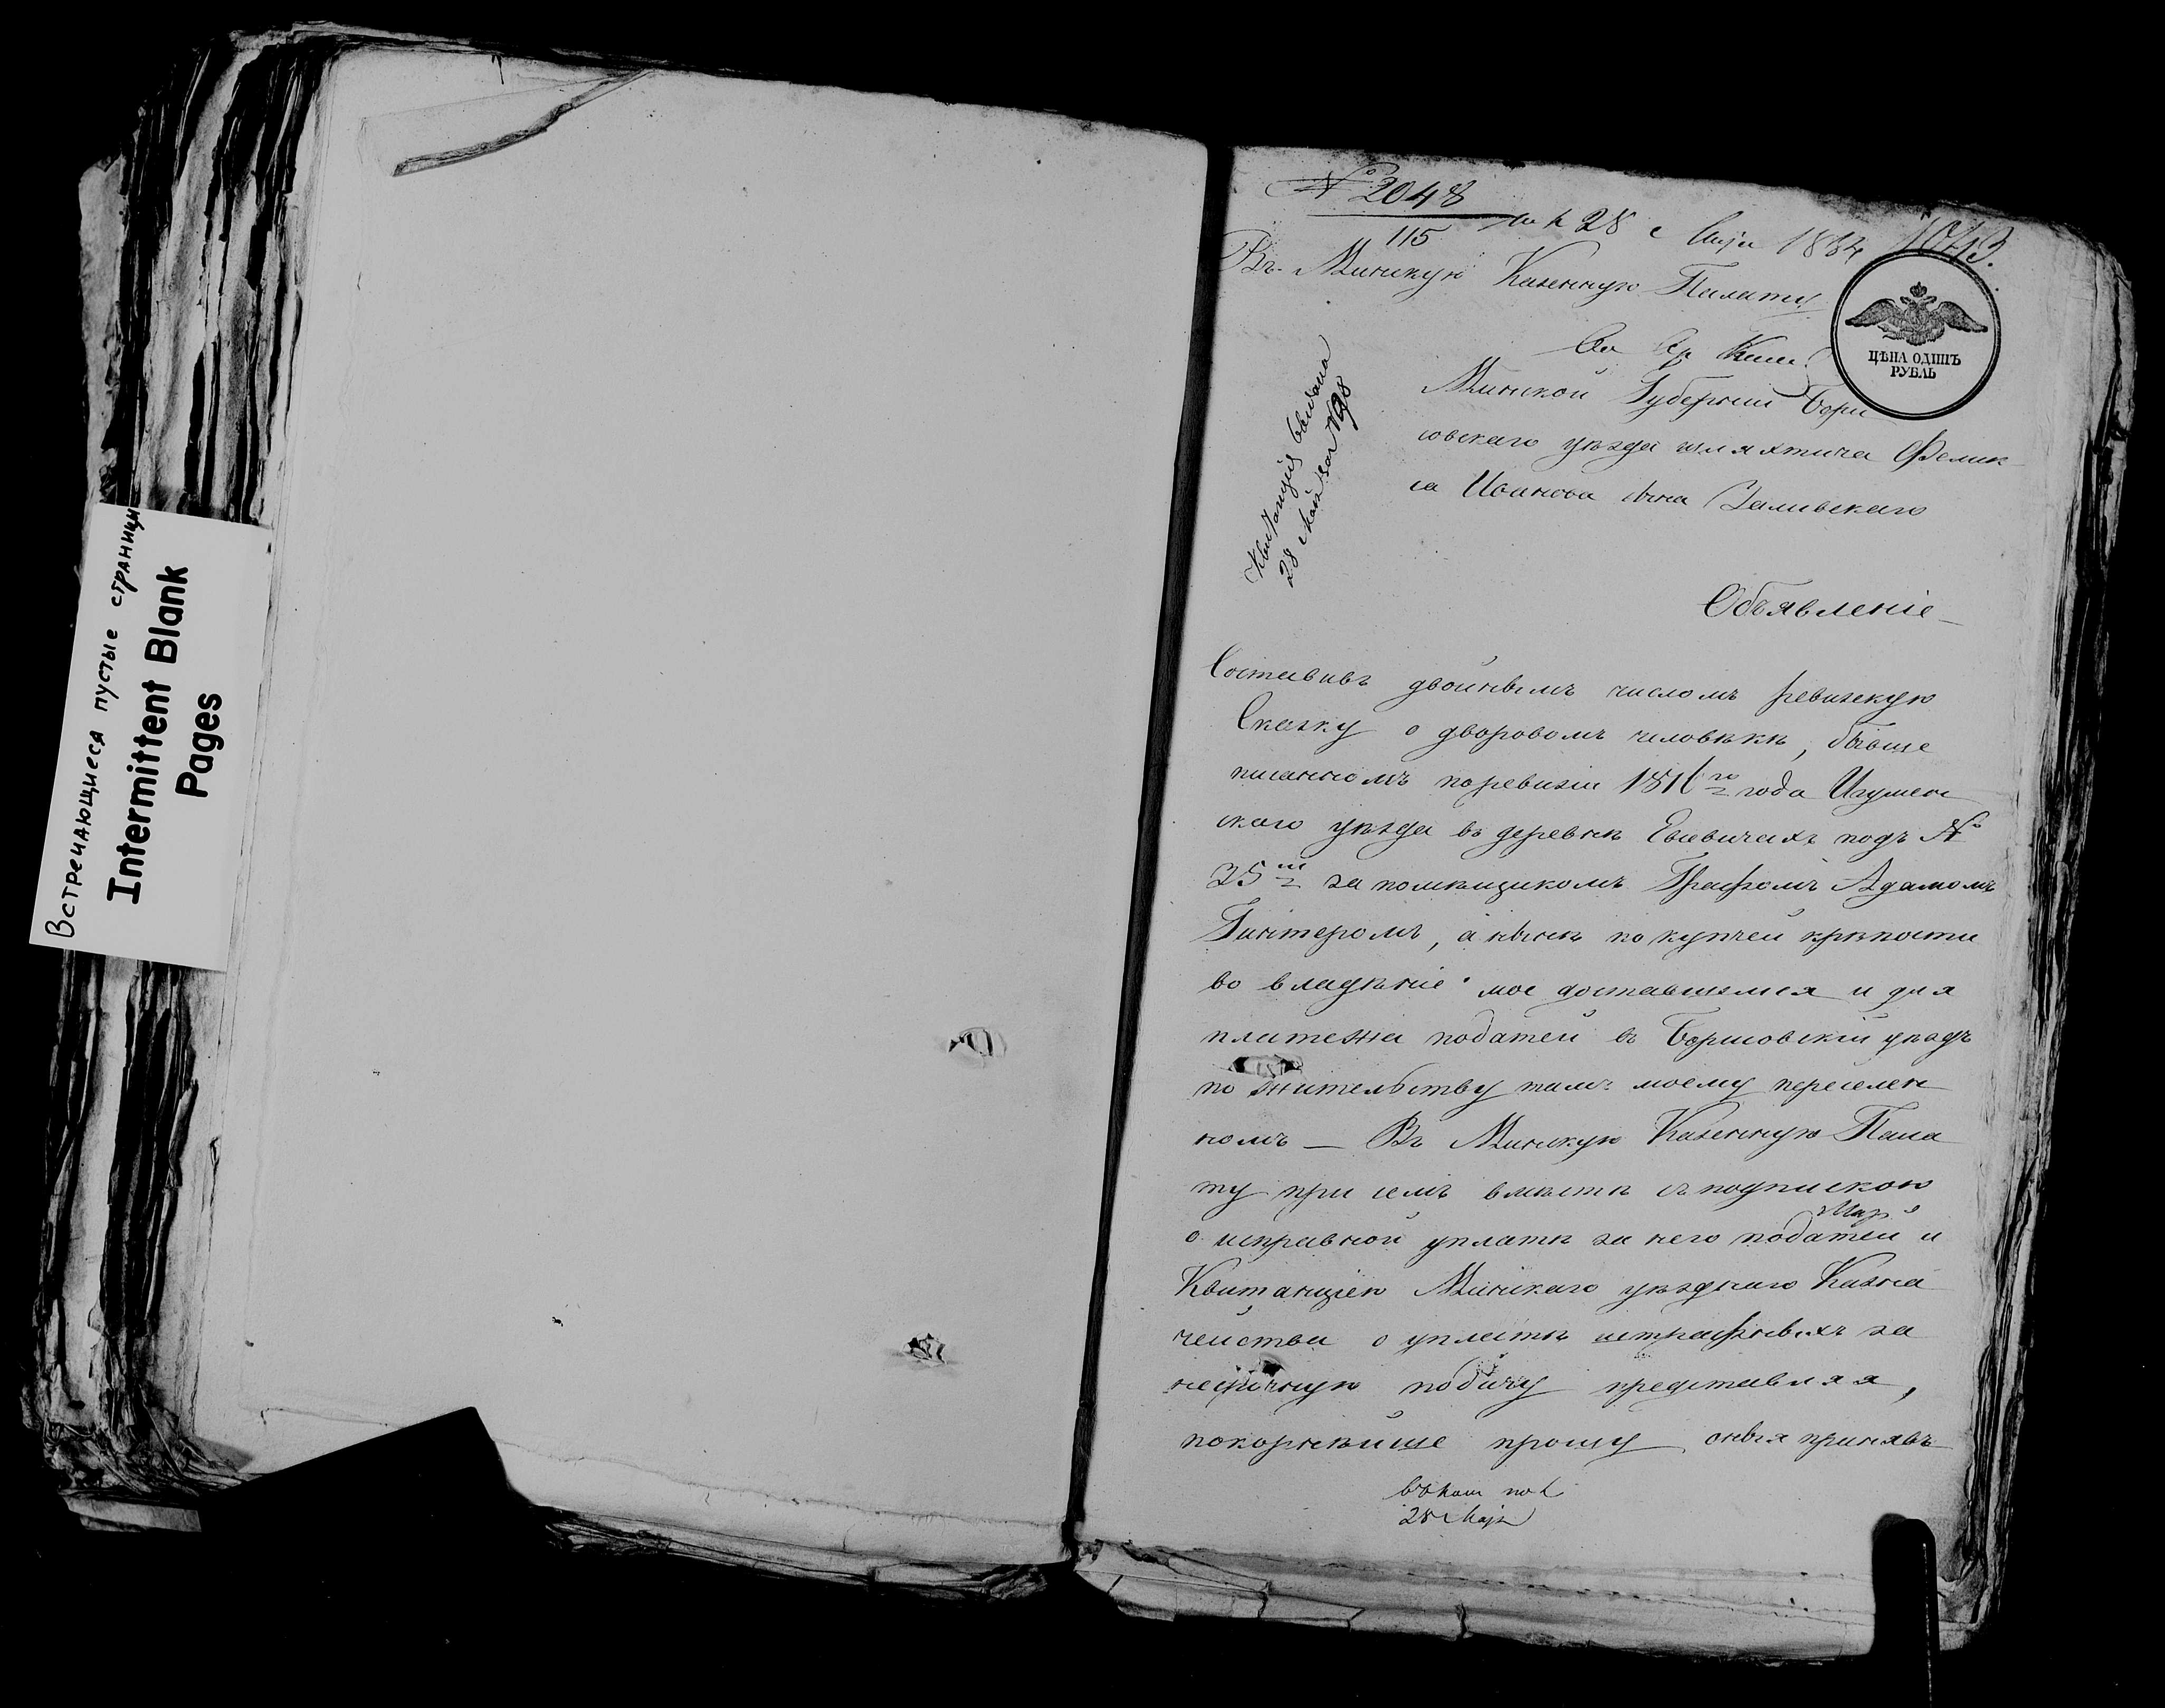 Встречающиеся пустые страницы
Intermittent Blank
Pages
№ 2048
115
28 Мая 1834
1043.
Въ Минскую Казенную Палату
ЦѢНА ОДИНЪ
РУБЛЬ
Минской Губерніи Бори
совскаго уѣзда шляхтича Фелик
са Иванова сына Заливскаго
Квитанція выдана
28 Мая за № 98
Объявленіе
Составивъ двойнымъ числомъ ревизскую
Сказку о дворовомъ человѣкѣ,
писанномъ по ревизіи 1816го года Игумен
скаго уѣзда въ деревнѣ Евсевичахъ подъ №
25м за помѣщикомъ Графомъ Адамомъ
Гинтеромъ, а нынѣ по купчей крѣпости
во владѣніе мое доставшемся и для
платежа податей въ Борисовскій уѣздъ
по жительству тамъ моему переселен
номъ — Въ Минскую Казенную Пала
ту при семъ вмѣстѣ съ подпискою
о исправной уплатѣ за него податей и
Квитанціею Минскаго уѣзднаго Казна
чейства о уплатѣ штрафныхъ за
несрочную подачу представляя,
покорнѣйше прошу оныя принявъ
28 Мая